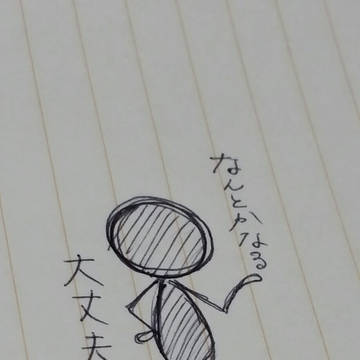 なんとかなる
大丈夫